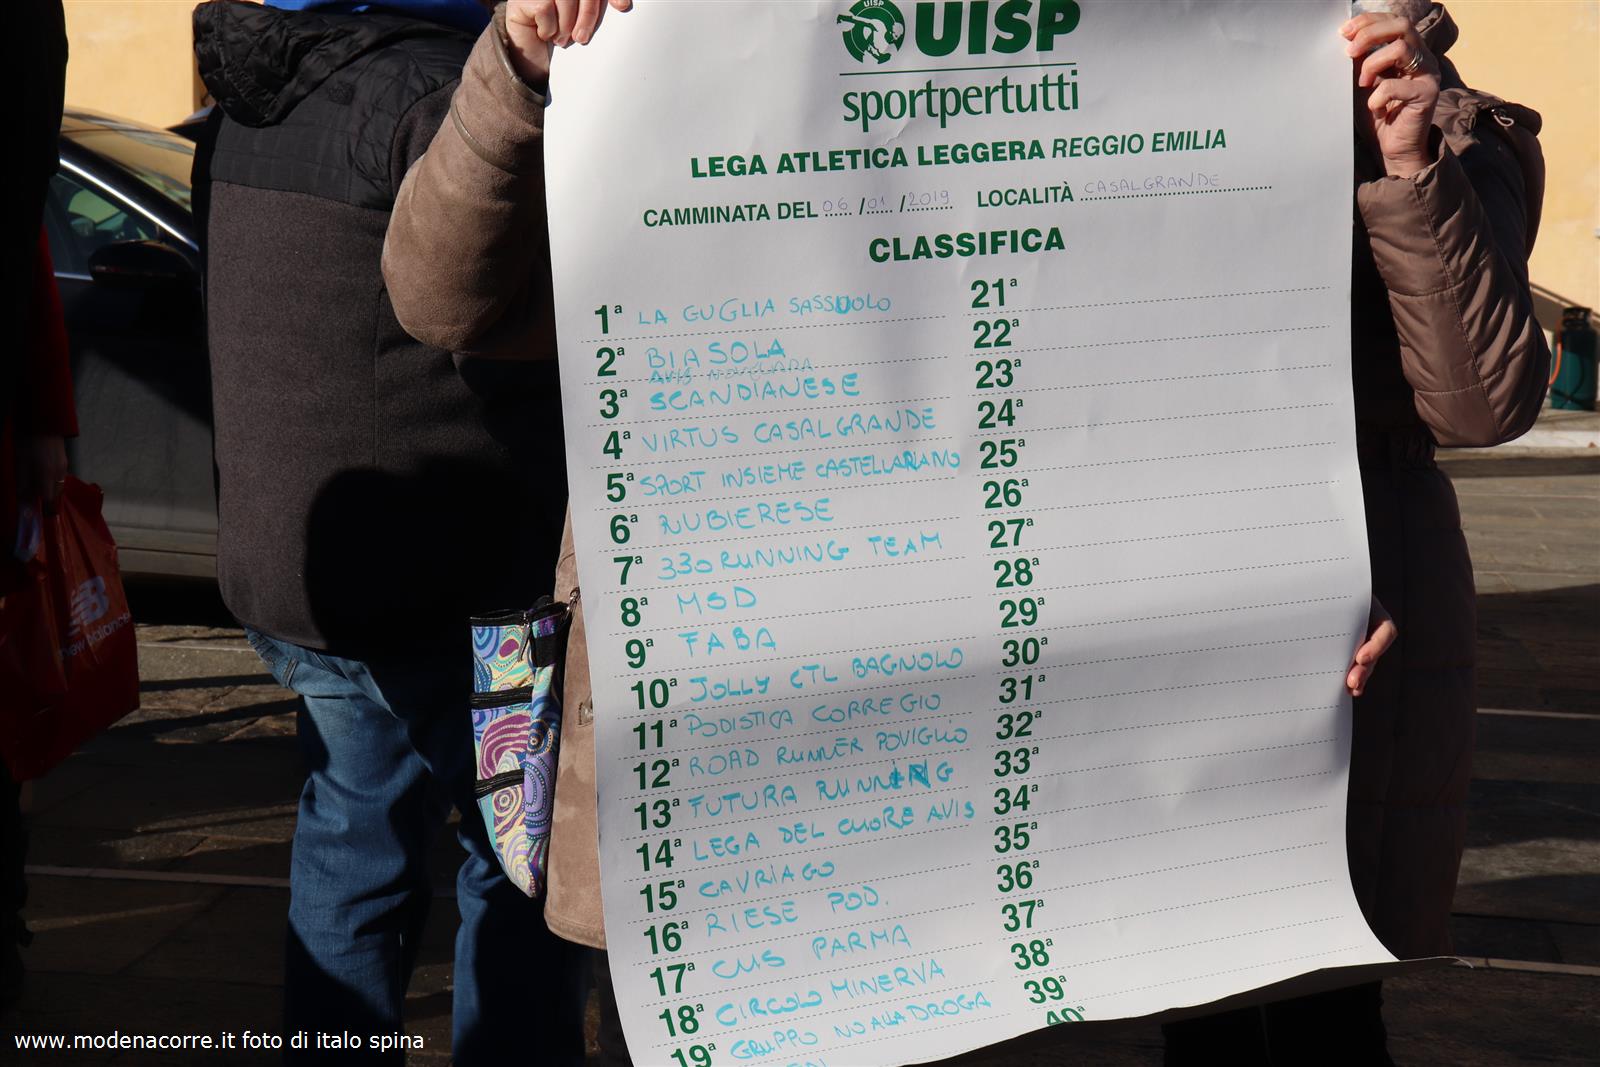 UISP
UISP
sportpertutti
LEGA ATLETICA LEGGERA REGGIO EMILIA
CAMMINATA DEL 06/01/2019 LOCALITÀ CASALGRANDE
CLASSIFICA
1ª LA GUGLIA SASSUOLO
2ª BIASOLA
AVIS NOVELLARA
3ª SCANDIANESE
4ª VIRTUS CASALGRANDE
5ª SPORT INSIEME CASTELLARANO
6ª RUBIERESE
7ª 330 RUNNING TEAM
8ª MSD
9ª FABA
10ª JOLLY CTL BAGNOLO
11ª PODISTICA CORREGIO
12ª ROAD RUNNER POVIGLIO
13ª FUTURA RUNNING
14ª LEGA DEL CUORE AVIS
15ª CAVRIAGO
16ª RIESE POD.
17ª CUS PARMA
18ª CIRCOLO MINERVA
19ª GRUPPO NO ALLA DROGA
21ª
22ª
23ª
24ª
25ª
26ª
27ª
28ª
29ª
30ª
31ª
32ª
33ª
34ª
35ª
36ª
37ª
38ª
39ª
40ª
new balance
www.modenacorre.it foto di italo spina